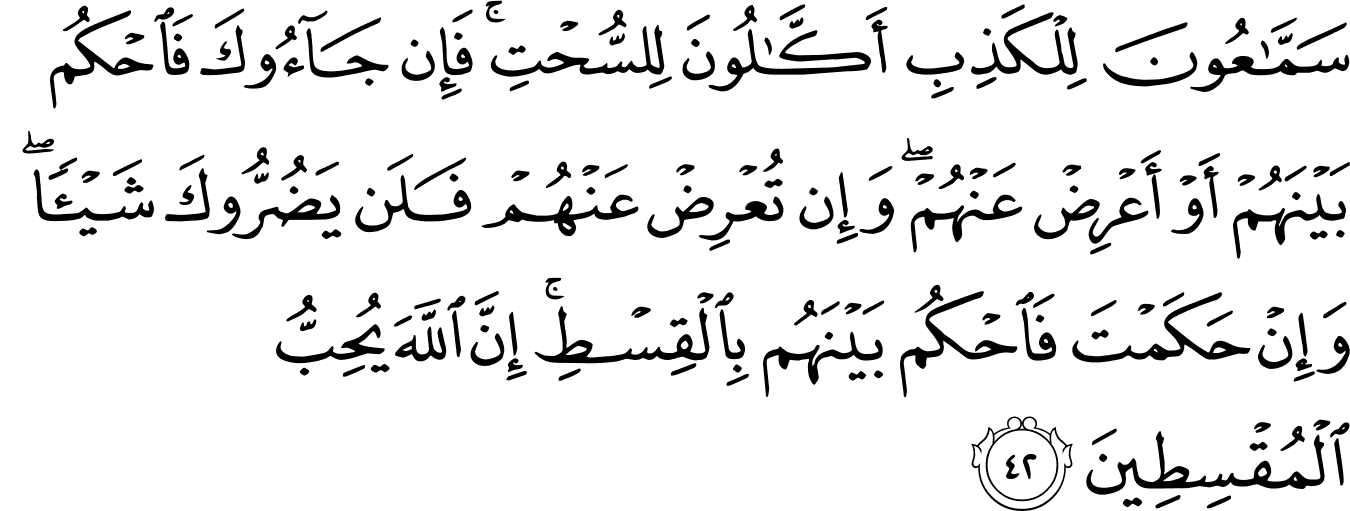 سَمَّٰعُونَ لِلْكَذِبِ أَكَّٰلُونَ لِلسُّحْتِ ۚ فَإِن جَآءُوكَ فَٱحْكُم
بَيْنَهُمْ أَوْ أَعْرِضْ عَنْهُمْ ۖ وَإِن تُعْرِضْ عَنْهُمْ فَلَن يَضُرُّوكَ شَيْـًٔا ۖ
وَإِنْ حَكَمْتَ فَٱحْكُم بَيْنَهُم بِٱلْقِسْطِ ۚ إِنَّ ٱللَّهَ يُحِبُّ
ٱلْمُقْسِطِينَ ٤٢